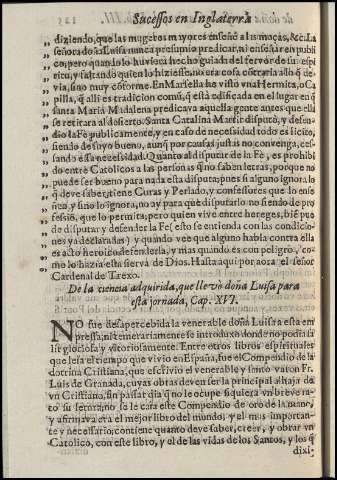 Sucessos en Inglaterra
„ diziendo, que las mugeres mayores enseñē al as moças, &c. La
„ señora doña Luisa nunca presumio predicar, ni enseñar en publi
„ co, pero quando lo huviera hecho guiada del fervor de su espi
„ ritu, y faltando quien lo hiziesse, no era cosa cōtraria al lo q̄ de
„ via, sino muy cōforme. En Marsella he visto vna Hermita, o Ca
„ pilla, q̄ alli es tradicion comũ, q̄ està edificada en el lugar en q̄
„ santa Maria Madalena predicava aquella gente antes que ella
„ se retirara al desierto. Santa Catalina Martir disputò, y defen-
„ dio la Fè publicamente, y en caso de necessidad todo es licito,
„ siendo de suyo bueno, aunq̄ por causas justas no convenga, ces-
„ sando esta necessidad. Quanto al disputar de la Fè, es prohibi
„ do entre Catolicos a las personas q̄ no saben letras, porque no
„ puede ser bueno para nada esta disputa, pues si alguno ignora lo
„ q̄ deve saber, tiene Curas y Perlado, y confessores que lo ense
„ ñen, y sino lo ignora, no ay para que disputarlo no siendo de pro
„ fessiō, que lo permita, pero quien vive entre hereges, biē pue
„ de disputar y defender la Fe( esto se entienda con las condicio
„ nes ya declaradas) y quando vee que alguno habla contra ella
„ es acto heroico defenderla, y mas quando es con peligro, co-
„ mo lo hazia esta sierva de Dios. Hasta aqui por aora el señor
Cardenal de Trexo.
De la ciencia adquirida, que llevò doña Luisa para
esta jornada, Cap. XVI.
NO fue desapercebida la venerable doña Luisa a esta em
pressa, ni temerariamente se metio adonde no podria sa
lir gloriosa y vitoriosamente. Entre otros libros espirituales
que leìa el tiempo que vivio en España, fue el Compendio de la
dotrina Cristiana, que escrivio el venerable y santo varon Fr.
Luis de Granada, cuyas obras deven ser la principal alhaja de
vn Cristiano, sin passar dia q̄ no le ocupe siquiera vn breve ra-
to su letura, no se le caìa este Compendio de oro de la mano,
y afirmava era el mejor libro del mundo, y el mas importan-
te y necessario, contiene quanto deve saber, creer, y obrar vn
Catolico, con este libro, y el de las vidas de los Santos, y los q̄
dixi-